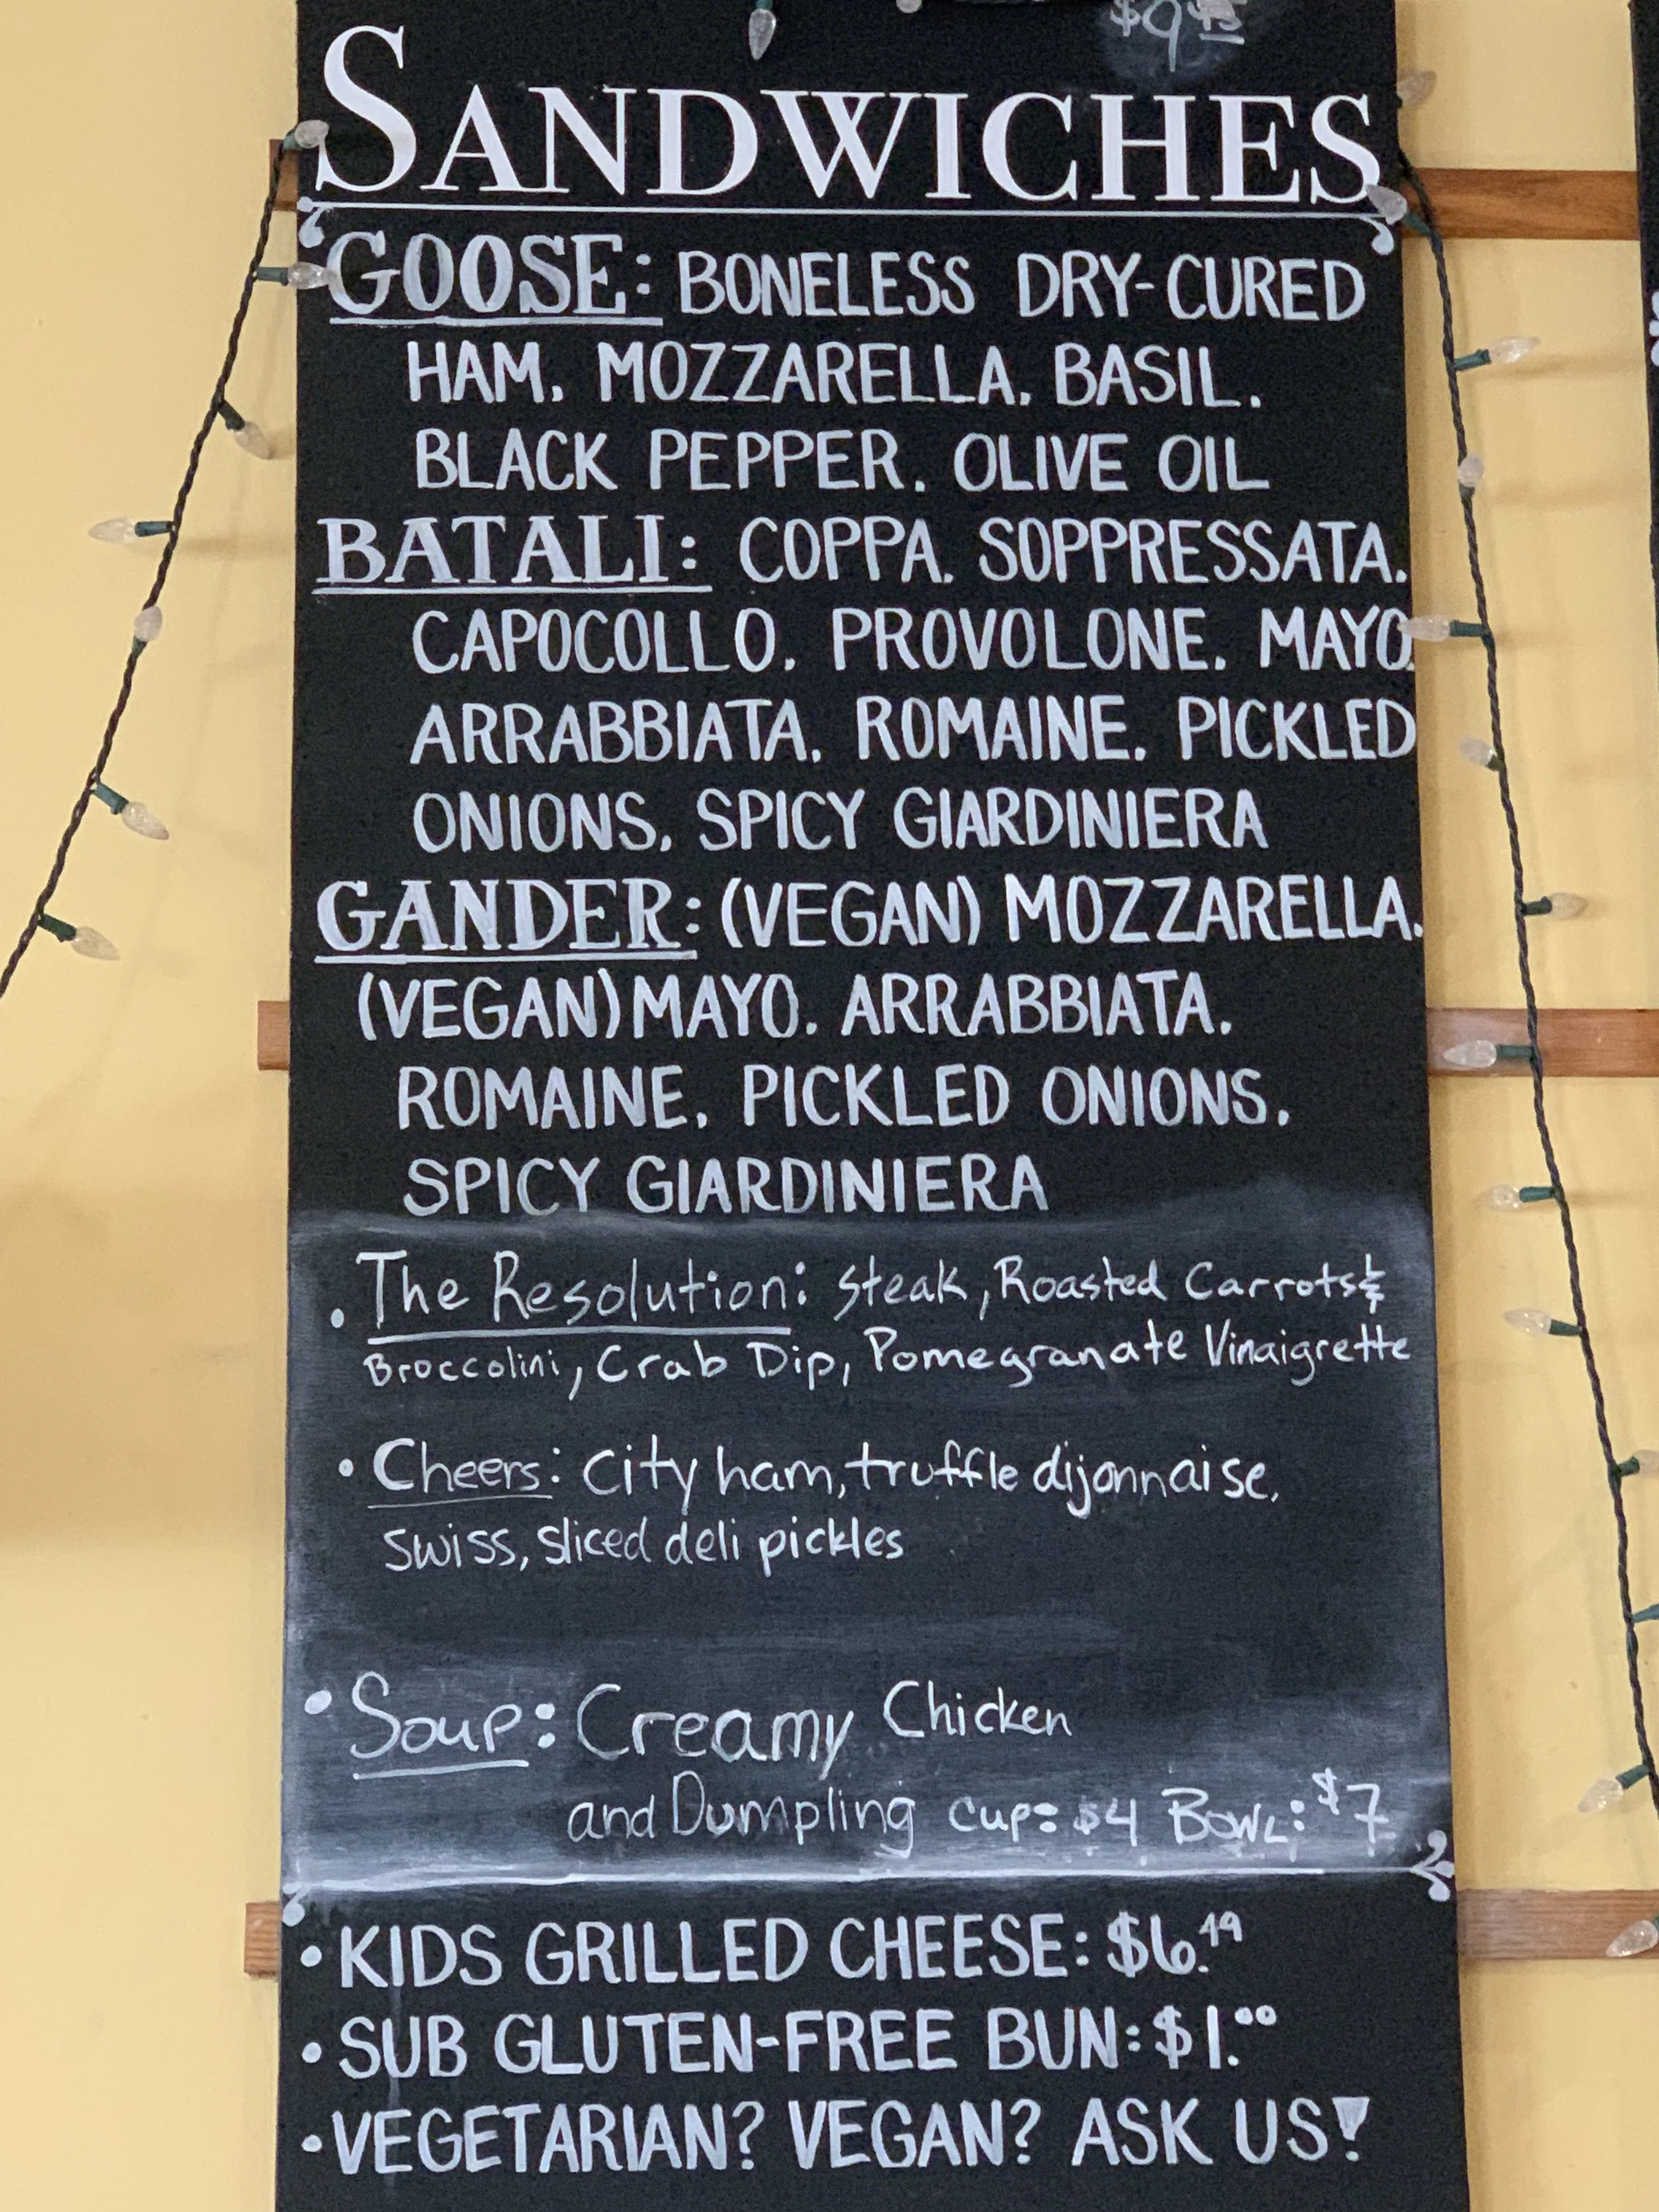 $9.45
SANDWICHES
GOOSE: BONELESS DRY-CURED
HAM. MOZZARELLA. BASIL.
BLACK PEPPER. OLIVE OIL
BATALI: COPPA. SOPPRESSATA.
CAPOCOLLO. PROVOLONE. MAYO.
ARRABBIATA. ROMAINE. PICKLED
ONIONS. SPICY GIARDINIERA
GANDER: (VEGAN) MOZZARELLA.
(VEGAN) MAYO. ARRABBIATA.
ROMAINE. PICKLED ONIONS.
SPICY GIARDINIERA
• The Resolution: Steak, Roasted Carrots &
Broccolini, Crab Dip, Pomegranate Vinaigrette
• Cheers: City ham, truffle dijonnaise,
swiss, sliced deli pickles
• Soup: Creamy Chicken
and Dumpling Cup: $4 Bowl: $7
• KIDS GRILLED CHEESE: $6.49
• SUB GLUTEN-FREE BUN: $1.00
• VEGETARIAN? VEGAN? ASK US!